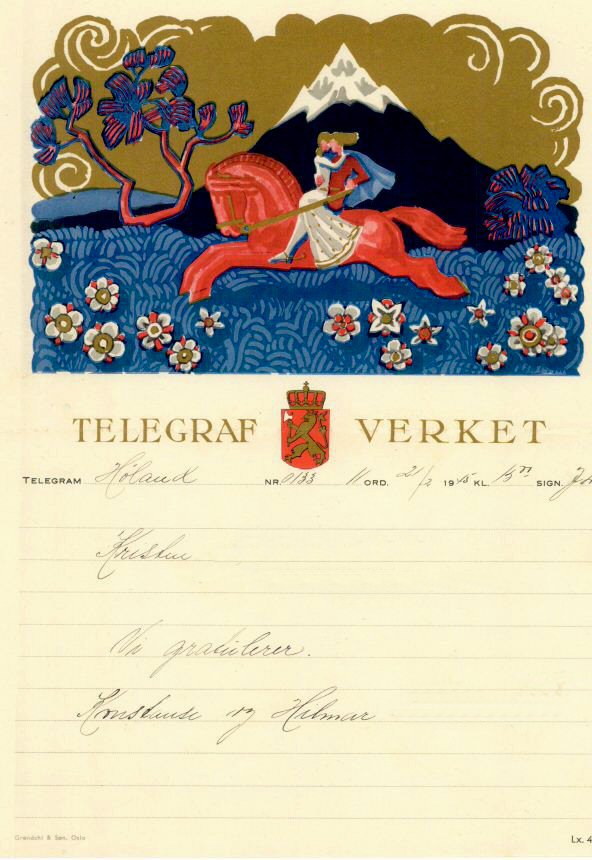 TELEGRAF VERKET
TELEGRAM Høland NR. 0133 11 ORD. 21/2 1945 KL. 15 SIGN.
Kristen
Vi gratulerer.
Konstanse og Hilmar
Grøndahl & Søn, Oslo Lx. 4